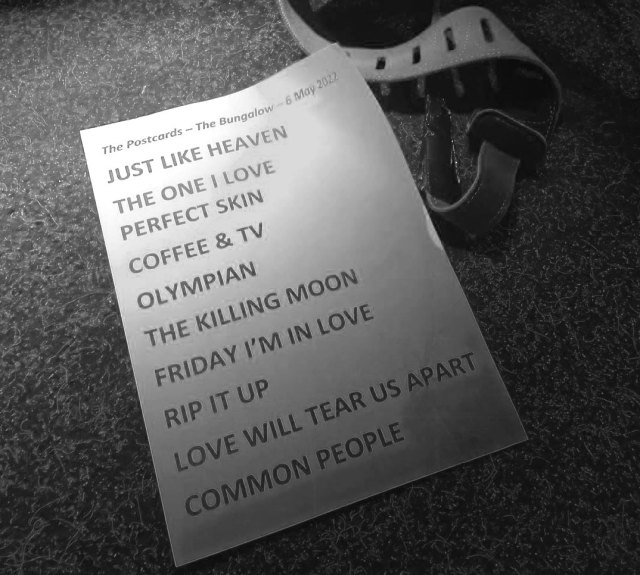 The Postcards – The Bungalow – 6 May 2022
JUST LIKE HEAVEN
THE ONE I LOVE
PERFECT SKIN
COFFEE & TV
OLYMPIAN
THE KILLING MOON
FRIDAY I'M IN LOVE
RIP IT UP
LOVE WILL TEAR US APART
COMMON PEOPLE